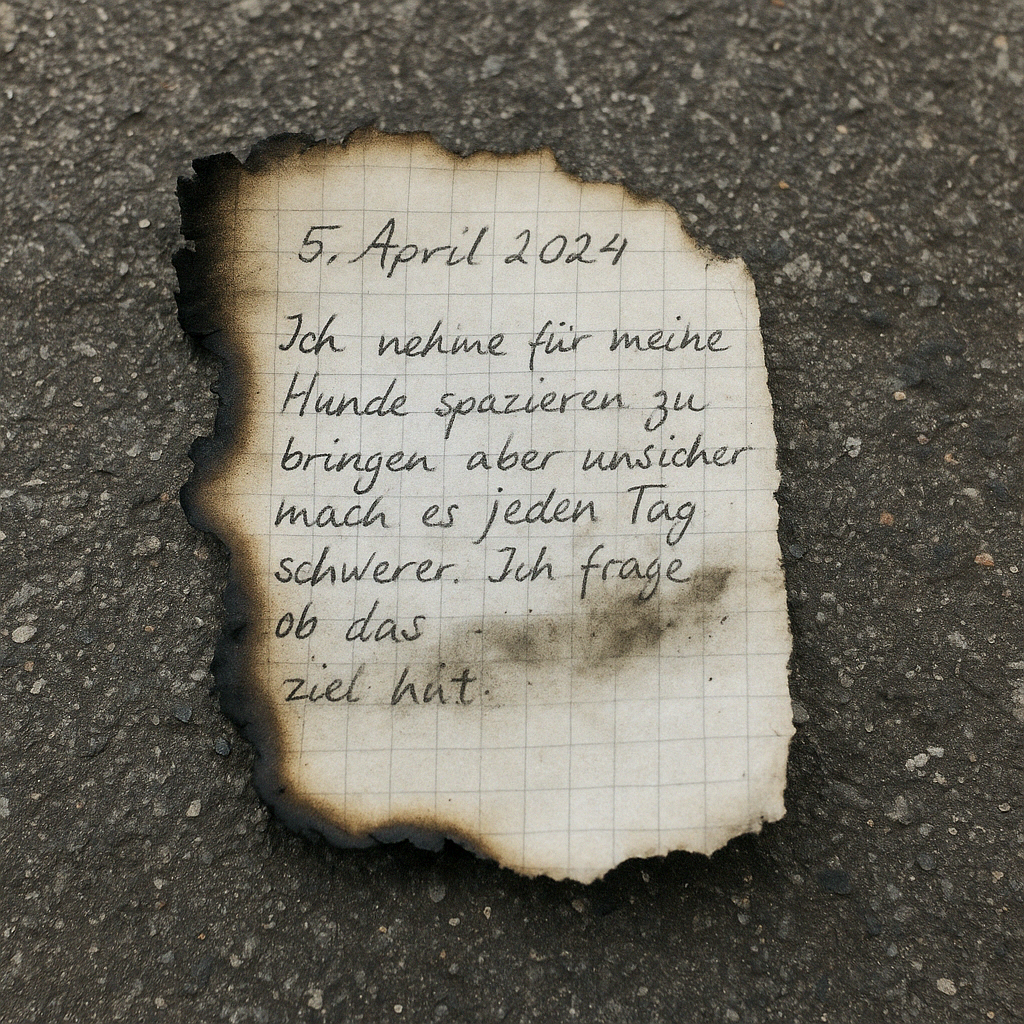 5. April 2024
Ich nehme für meine
Hunde spazieren zu
bringen aber unsicher
mach es jeden Tag
schwerer. Ich frage
ob das
ziel hat.